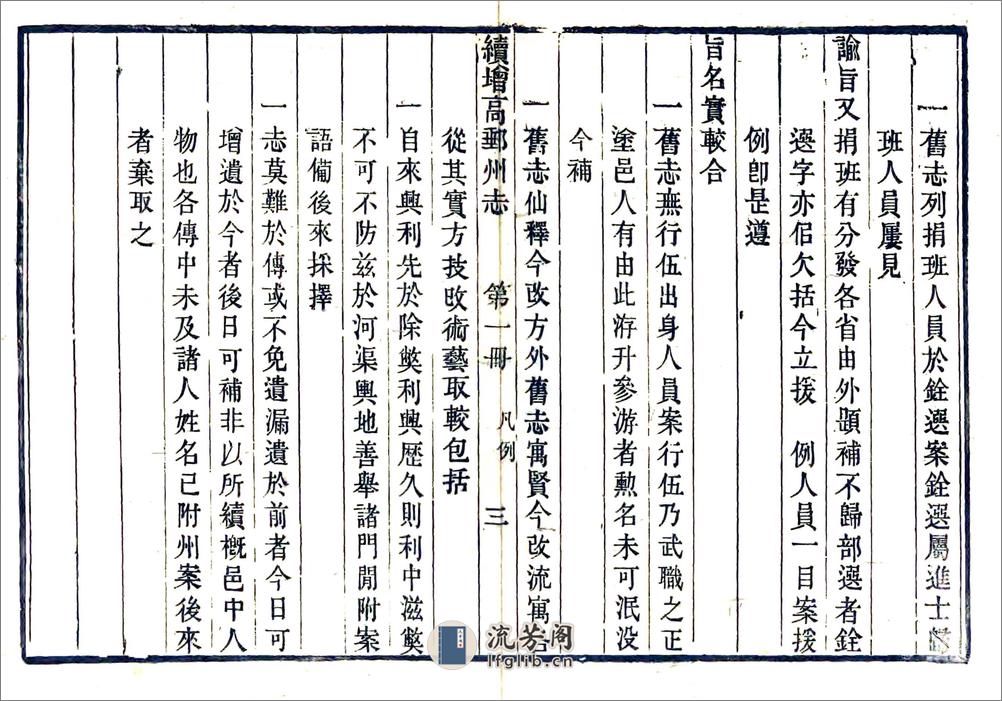 一舊志列捐班人員於銓選案銓選屬進士
班人員屢見
諭旨又捐班有分發各省由外題補不歸部選者銓
選字亦佀欠括今立援　例人員一目案援
例卽是遵
旨名實較合
一舊志無行伍出身人員案行伍乃武職之正
塗邑人有由此游升參游者勲名未可泯没
今補
一舊志仙釋今改方外舊志寓賢今改流寓
續增高郵州志　第一冊　凡例　三
從其實方技改術藝取較包括
一自來興利先於除獘利興歷久則利中滋獘
不可不防兹於河渠輿地善舉諸門閒附案
語備後來採擇
一志莫難於傳或不免遺漏遺於前者今日可
增遺於今者後日可補非以所續槪邑中人
物也各傳中未及諸人姓名已附州案後來
者棄取之
流芳阁
lfglib.cn